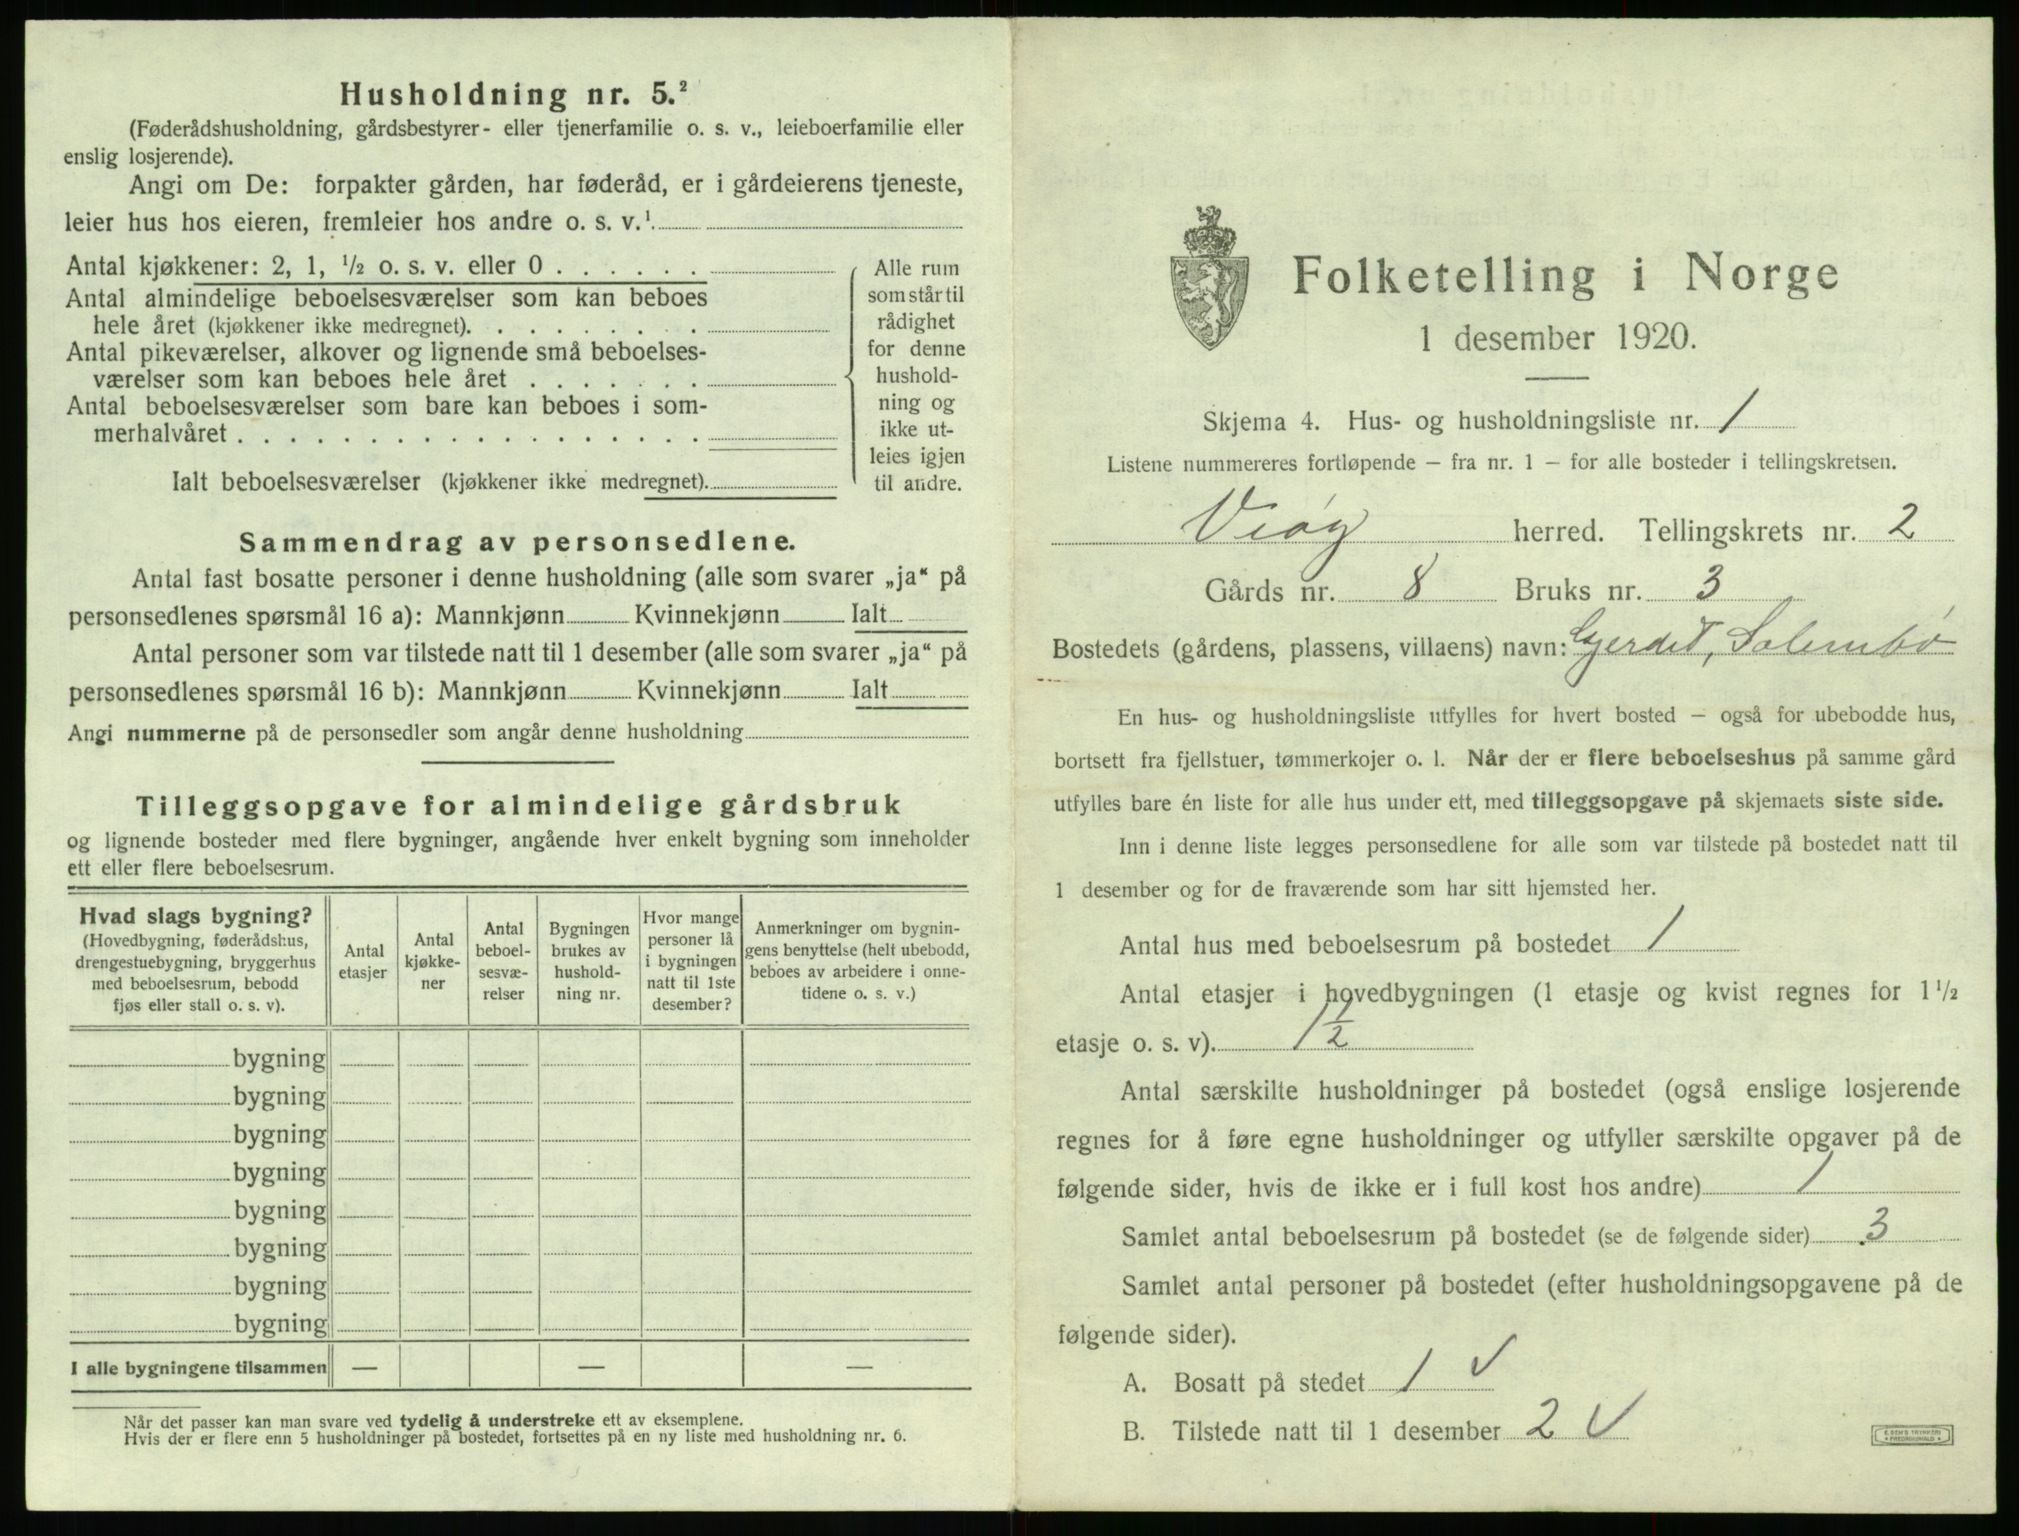 Husholdning nr. 5.²
(Føderådshusholdning, gårdsbestyrer- eller tjenerfamilie o. s. v., leieboerfamilie eller
enslig losjerende).
Angi om De: forpakter gården, har føderåd, er i gårdeierens tjeneste,
leier hus hos eieren, fremleier hos andre o. s. v.¹
Antal kjøkkener: 2, 1, ½ o. s. v. eller 0 . . . . . .
Antal almindelige beboelsesværelser som kan beboes
hele året (kjøkkener ikke medregnet). . . . . . . . .
Antal pikeværelser, alkover og lignende små beboelses-
værelser som kan beboes hele året . . . . . . .
Antal beboelsesværelser som bare kan beboes i som-
merhalvåret . . . . . . . . . . . . . . . . . .
Ialt beboelsesværelser (kjøkkener ikke medregnet).
Alle rum
som står til
rådighet
for denne
hushold-
ning og
ikke ut-
leies igjen
til andre.
Sammendrag av personsedlene.
Antal fast bosatte personer i denne husholdning (alle som svarer „ja“ på
personsedlenes spørsmål 16 a): Mannkjønn Kvinnekjønn Ialt
Antal personer som var tilstede natt til 1 desember (alle som svarer „ja“ på
personsedlenes spørsmål 16 b): Mannkjønn Kvinnekjønn Ialt
Angi nummerne på de personsedler som angår denne husholdning
Tilleggsopgave for almindelige gårdsbruk
og lignende bosteder med flere bygninger, angående hver enkelt bygning som inneholder
ett eller flere beboelsesrum.
Hvad slags bygning?
(Hovedbygning, føderådshus,
drengestuebygning, bryggerhus
med beboelsesrum, bebodd
fjøs eller stall o. s. v).
Antal
etasjer
Antal
kjøkke-
ner
Antal
beboel-
sesvæ-
relser
Bygningen
brukes av
hushold-
ning nr.
Hvor mange
personer lå
i bygningen
natt til 1ste
desember?
Anmerkninger om bygnin-
gens benyttelse (helt ubebodd,
beboes av arbeidere i onne-
tidene o. s. v.)
bygning
bygning
bygning
bygning
bygning
bygning
bygning
bygning
I alle bygningene tilsammen — — —
Når det passer kan man svare ved tydelig å understreke ett av eksemplene.
Hvis der er flere enn 5 husholdninger på bostedet, fortsettes på en ny liste med husholdning nr. 6.
Folketelling i Norge
1 desember 1920.
Skjema 4. Hus- og husholdningsliste nr. 1
Listene nummereres fortløpende – fra nr. 1 – for alle bosteder i tellingskretsen.
Veøy herred. Tellingskrets nr. 2
Gårds nr. 8 Bruks nr. 3
Bostedets (gårdens, plassens, villaens) navn: Gjerdet, Solembø
En hus- og husholdningsliste utfylles for hvert bosted – også for ubebodde hus,
bortsett fra fjellstuer, tømmerkojer o. l. Når der er flere beboelseshus på samme gård
utfylles bare én liste for alle hus under ett, med tilleggsopgave på skjemaets siste side.
Inn i denne liste legges personsedlene for alle som var tilstede på bostedet natt til
1 desember og for de fraværende som har sitt hjemsted her.
Antal hus med beboelsesrum på bostedet 1
Antal etasjer i hovedbygningen (1 etasje og kvist regnes for 1½
etasje o. s. v). 1½
Antal særskilte husholdninger på bostedet (også enslige losjerende
regnes for å føre egne husholdninger og utfyller særskilte opgaver på de
følgende sider, hvis de ikke er i full kost hos andre) 1
Samlet antal beboelsesrum på bostedet (se de følgende sider) 3
Samlet antal personer på bostedet (efter husholdningsopgavene på de
følgende sider).
A. Bosatt på stedet 1 ✓
B. Tilstede natt til 1 desember 2 ✓